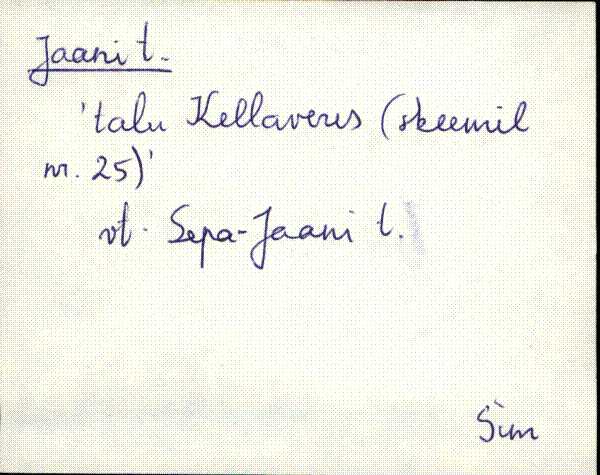 Jaani t.
'talu Kellaveres (skeemil
nr. 25)'
vt. Sepa-Jaani t.
Sim